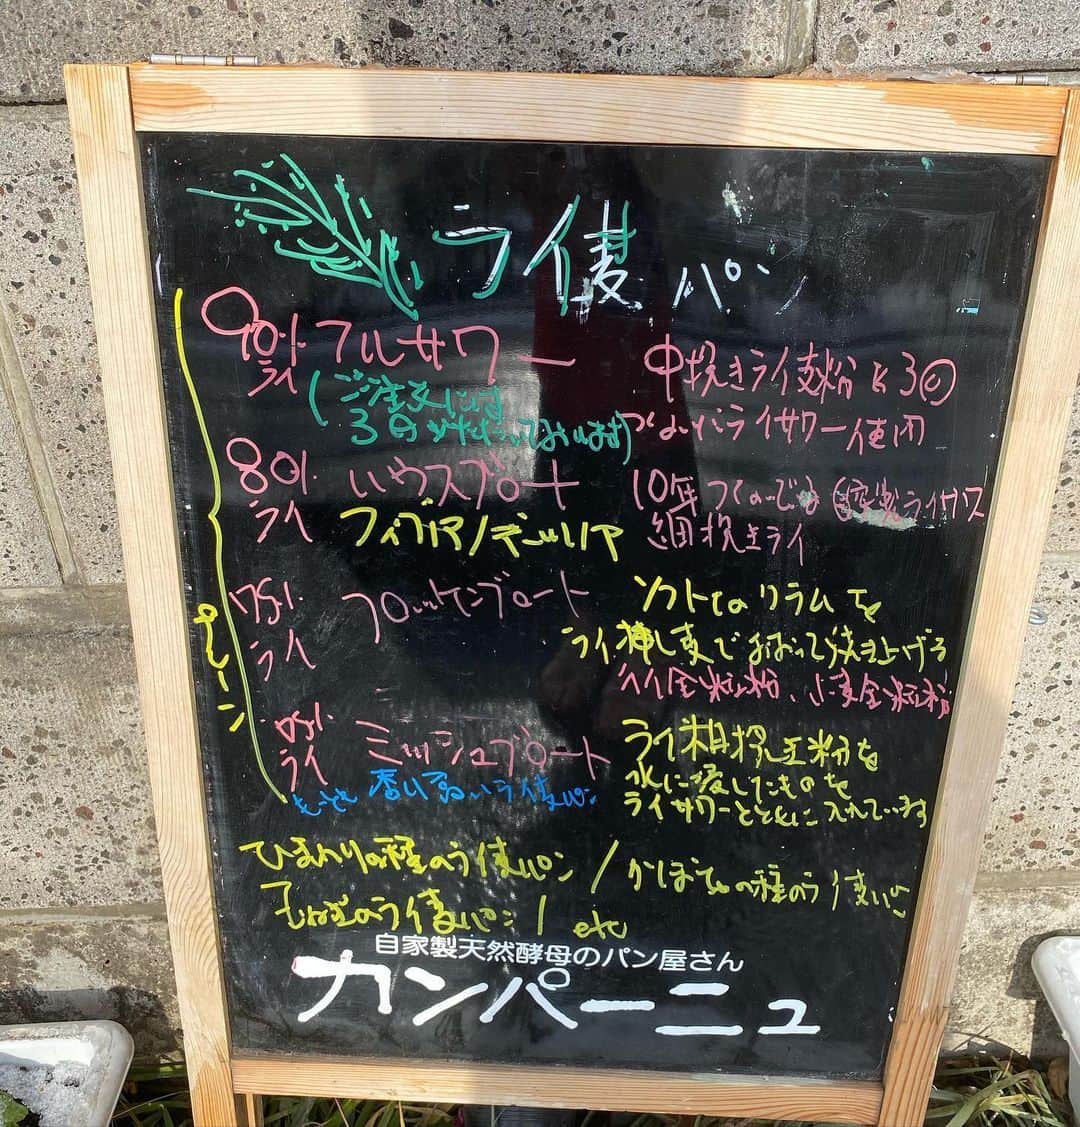 ライ麦パン
90% フルサワー 中挽きライ麦粉と3回
ライ (ご注文には つないだライサワー使用
3日かかっております)
80% ハウスブロート 10年つないでる自家製ライサワー
ライ フィグ 細挽きライ
75% フロッケンブロート ソフトなクラムを
ライ ライ押し麦でおおって焼き上げる
ライ全粒粉、小麦全粒粉
プレーン
ライ ミッシュブロート ライ粗挽き粉を
もっとも香り高いライ麦パン 水に浸したものを
ライサワーとともに入れています
ひまわりの種のライ麦パン / かぼちゃの種のライ麦パン
ライ麦パン / etc
自家製天然酵母のパン屋さん
カンパーニュ